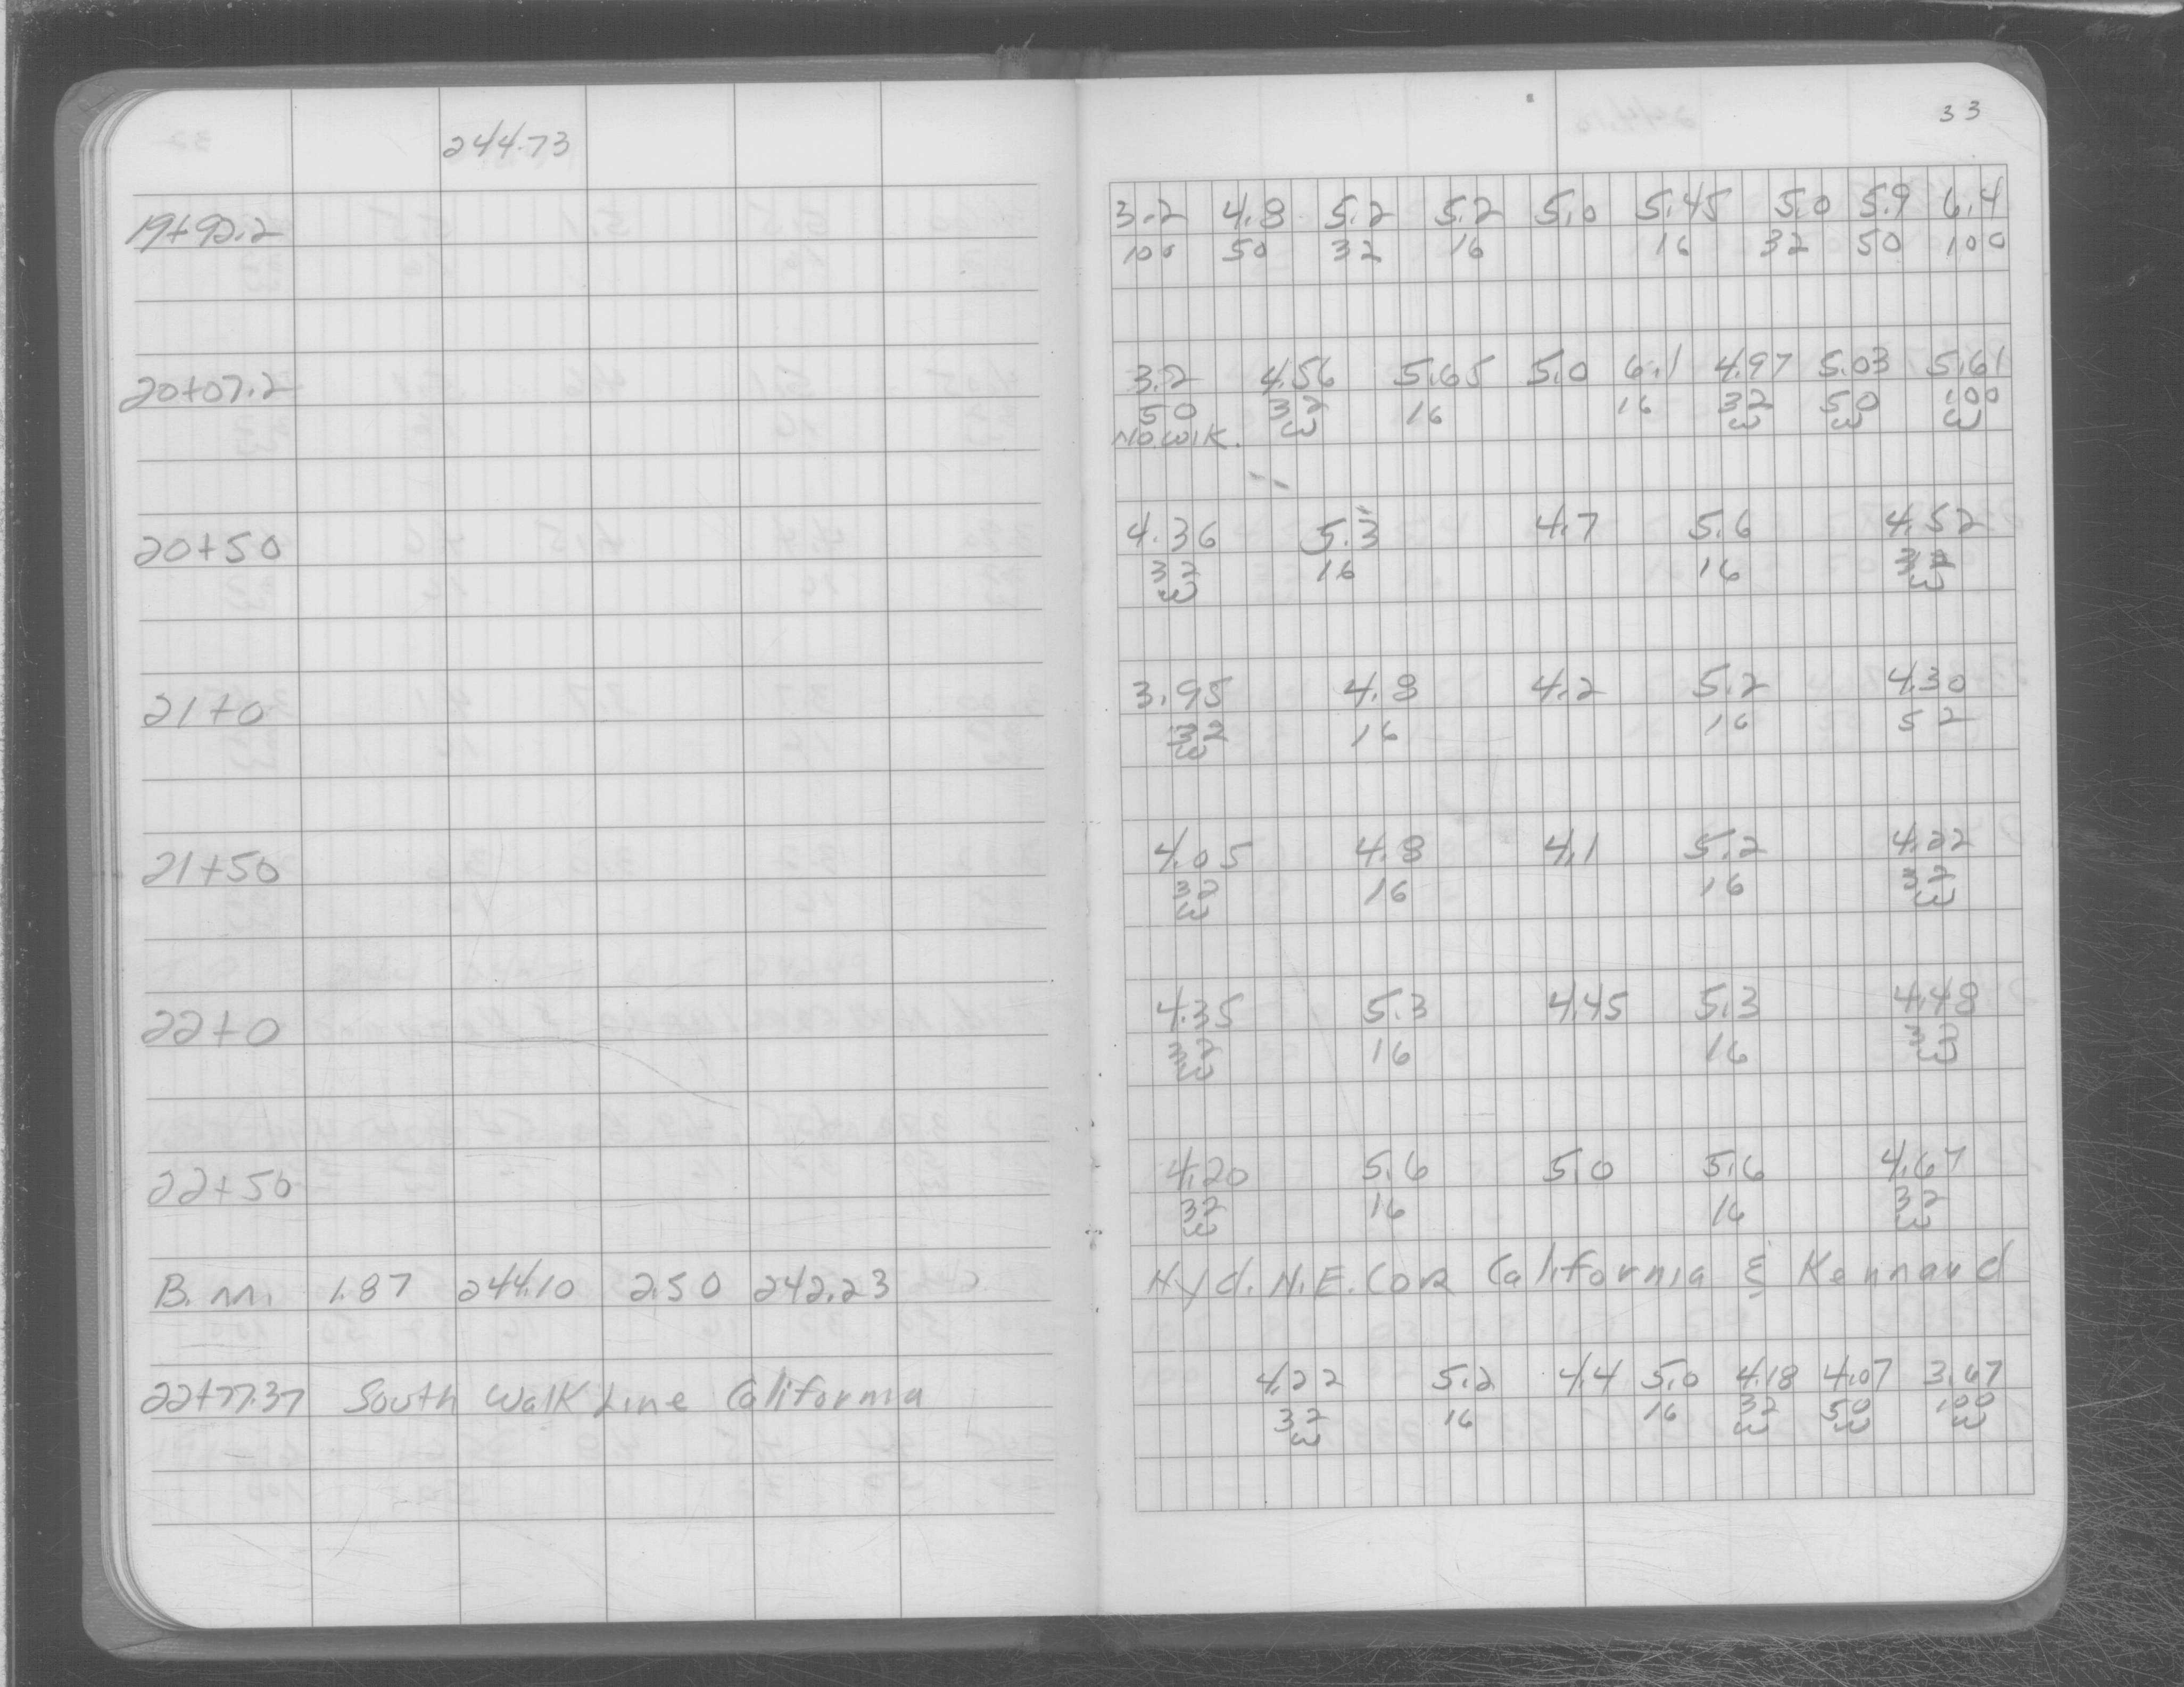 244.73
33
19+92.2 3.2 4.8 5.2 5.2 5.0 5.45 5.0 5.9 6.4
100 50 32 16 16 32 50 100
20+07.2 3.2 4.56 5.65 5.0 6.1 4.97 5.03 5.61
50 32 16 16 32 50 100
No walk. W W W W
20+50 4.36 5.3 4.7 5.6 4.52
32 16 16 32
W W
21+0 3.95 4.8 4.2 5.2 4.30
32 16 16 52
W
21+50 4.05 4.8 4.1 5.2 4.22
32 16 16 32
W W
22+0 4.35 5.3 4.45 5.3 4.48
32 16 16 32
W W
22+50 4.20 5.6 5.0 5.6 4.67
32 16 16 32
W W
B.M. 1.87 244.10 2.50 242.23 Hyd. N.E. Cor California & Kennard
22+77.37 South Walk Line California 4.22 5.2 4.4 5.0 4.18 4.07 3.67
32 16 16 32 50 100
W W W W